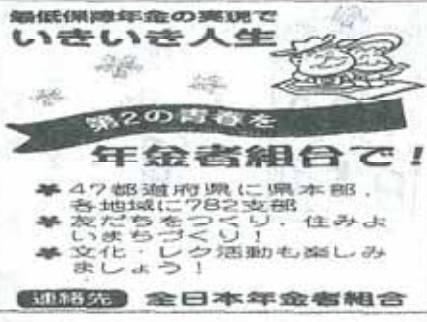 最低保障年金の実現で
いきいき人生
第2の青春を
年金者組合で！
47都道府県に県本部，
各地域に782支部
友だちをつくり，住みよ
いまちづくり！
文化・レク活動も楽しみ
ましょう！
連絡先 全日本年金者組合